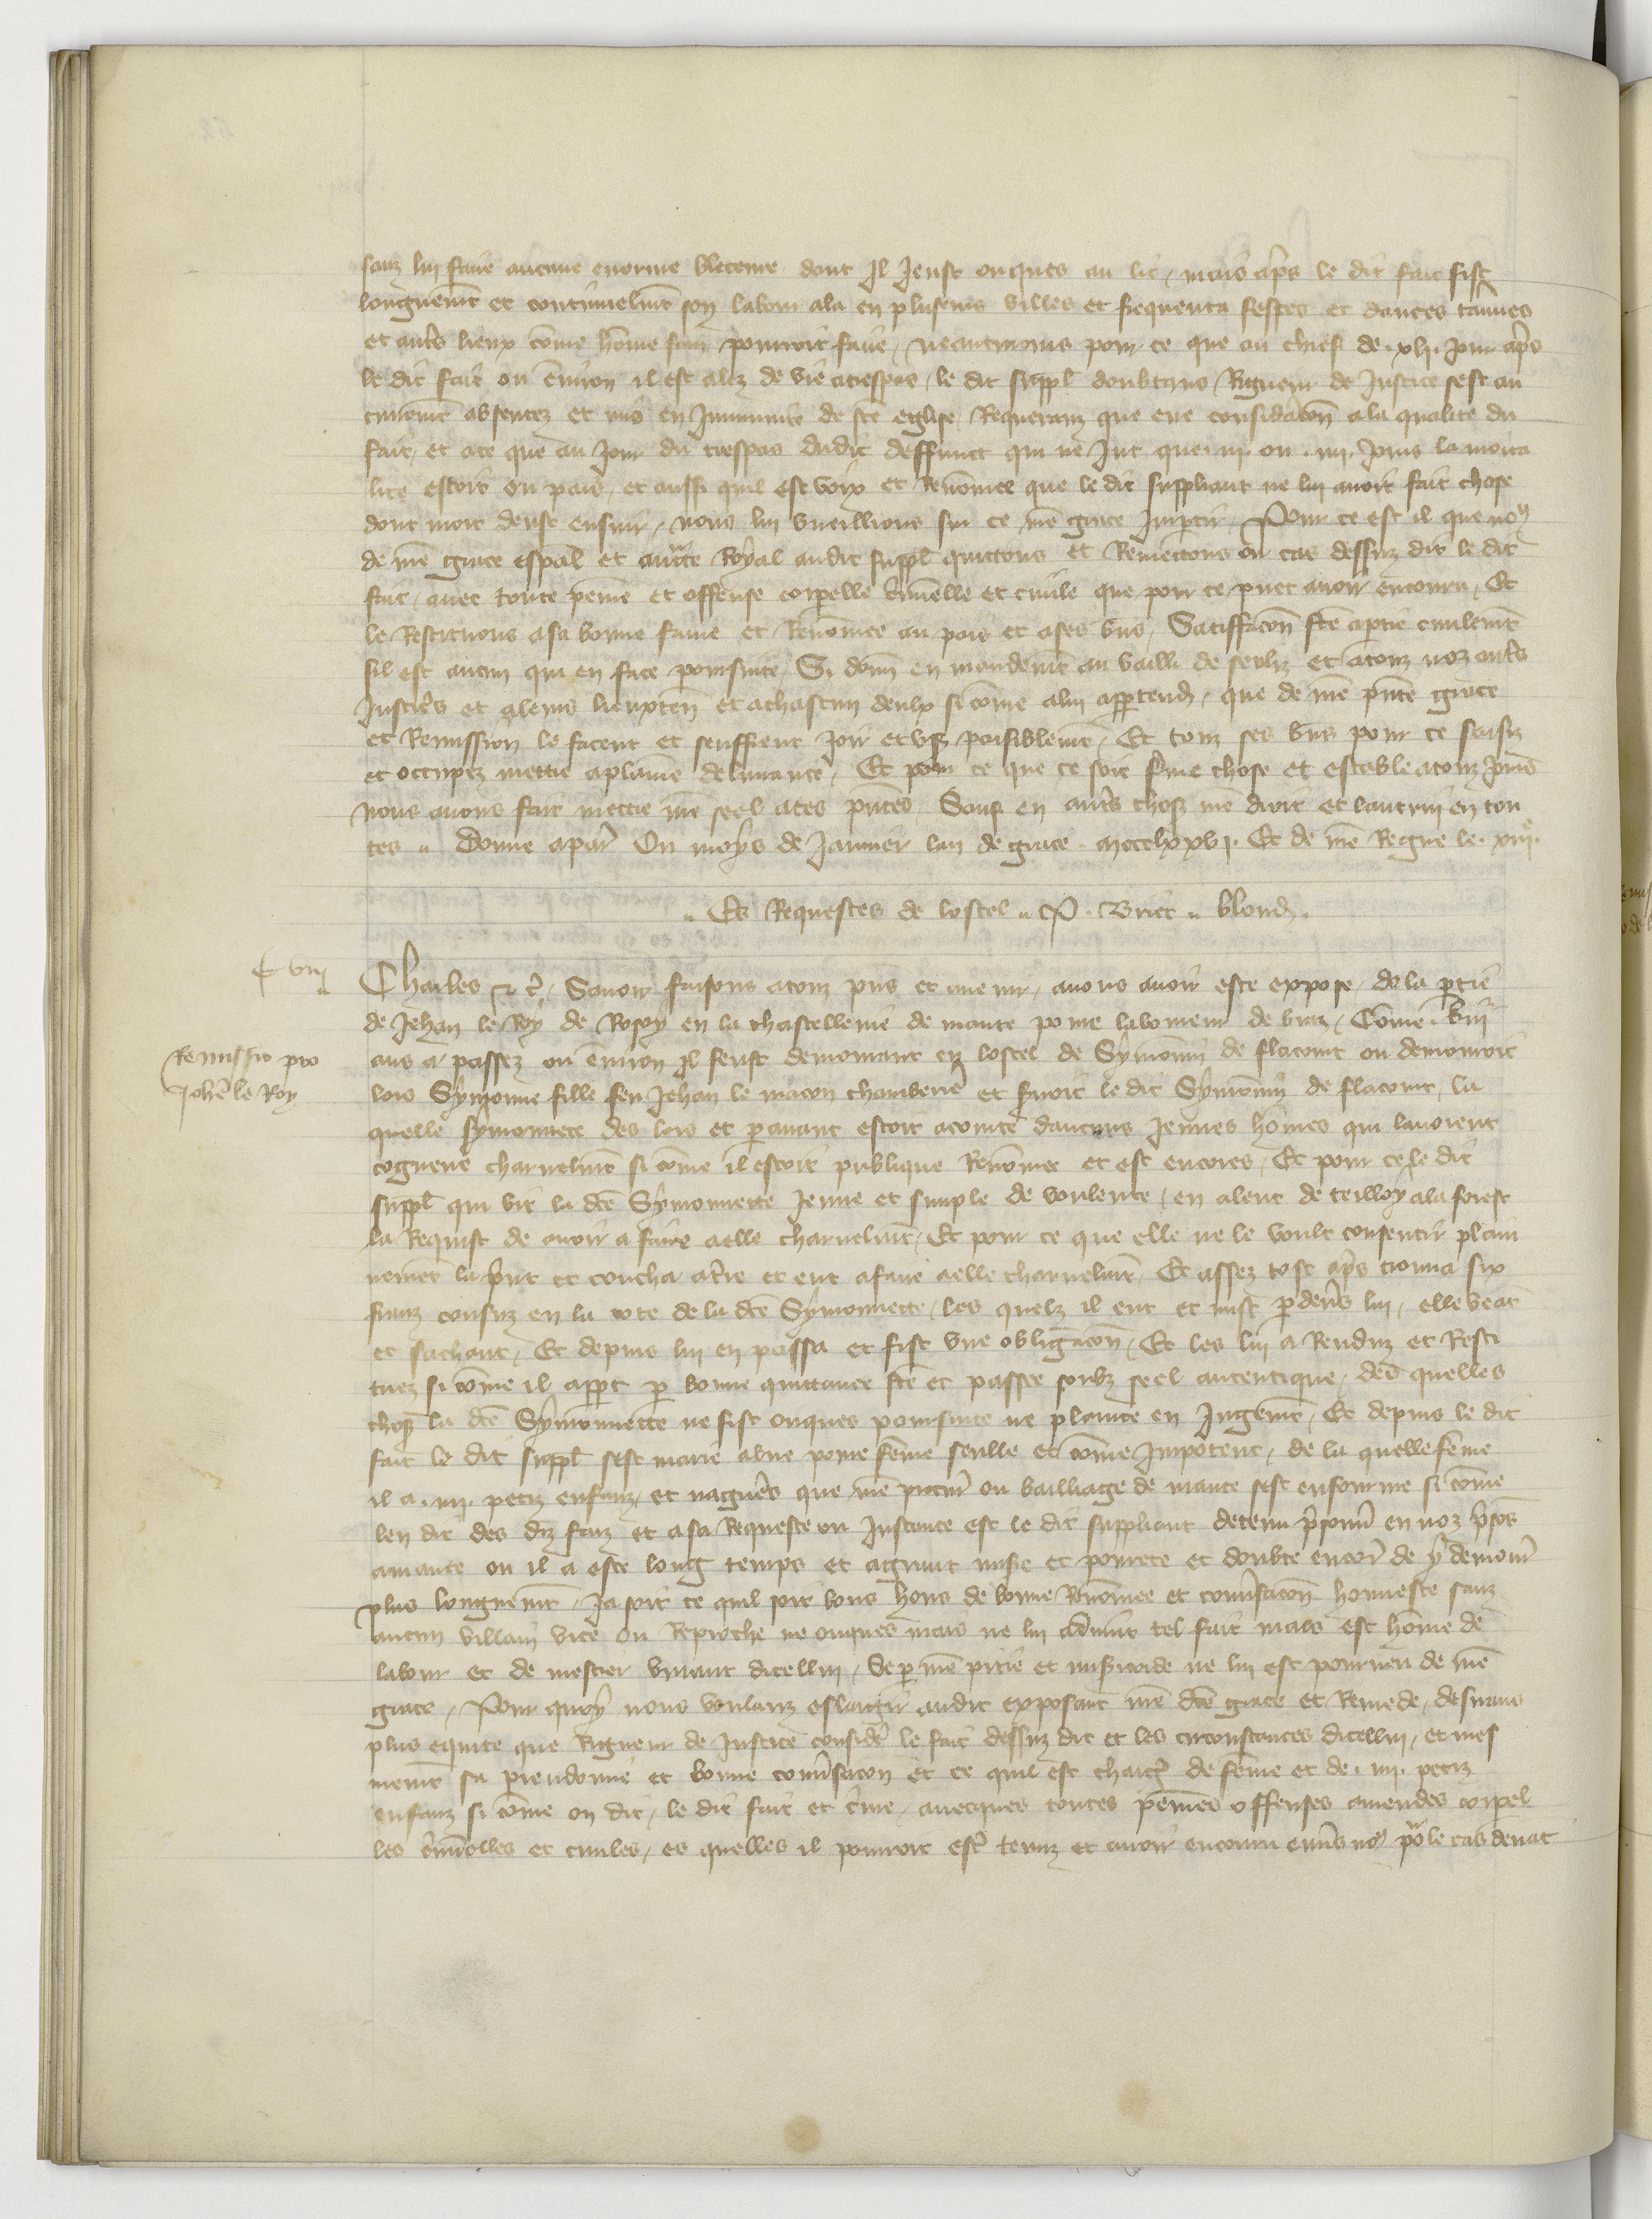 sanz lui faire aucune enorme bleceure dont Il Jeust onques au lit / mais ap̃s le dit fait fist
longuemẽt et continuelmẽt son labour ala en pluseurs villes et frequenta festes et dances tauernes
et autr̃s lieux cõme hõme sain pourroit faire / neantmoins pour ce que au chief de .xl. Jour ap̃s
le dit fait ou enuiron il est alez de vie a trespas / le dit suppl̃ doubtans Rigueur de Justice sest au
cunemẽt absentez et mis en Immunite de sc̃e eglise / Requerant que eue considerac̃on a la qualite du
fait / et a ce que au Jour du trespas dudit deffunct qui ne Jut que .iii. ou .iiii. Jours la morta
lite estoit ou pais / et aussi quil est voix et Renõmee que le dit suppliant ne lui auoit fait chose
dont mort deust ensuir / nous lui vueillions sur ce nr̃e grace Impartir / Pour ce est il que no9
de nr̃e grace esp̃al et auct̃e Royal audit suppl̃ quittons et Remettons ou cas dessuz dit le dit
fait / auec toute peine et offense corporelle cr̃iminelle et ciuile que pour ce puet auoir encouru / Et
le Restituons a sa bonne fame et Renõmee au pais et a ses biens / Satisfac̃on fc̃e a partie ciuilemẽt
sil est aucun qui en face poursuite / Si donñ en mandemẽt au bailli de senliz et a touz noz autr̃s
Justic̃rs et a leurs lieuxten̄ et a chascun deulx si cõme a lui app̃tendr̃ / que de nr̃e p̃nte grace
et Remission le facent et seuffrent Joir et vser paisiblemẽt / Et touz ses biens pour ce saisiz
et occupez mettre a plaine deliurance / Et pour ce que ce soit ferme chose et estable a touz Jours
nous auons fait mettre nr̃e seel a ces p̃ntes / Sauf en autr̃s choses nr̃e droit et lautrui en tou
tes " Donne a Paris Ou moys de Januier lan de grace .mccclxxvi. Et de nr̃e Regne le .xiiie.
" Es Requestes de lostel " P. Briet " blond̃.
C vii "
Charles & c̃. Sauoir faisons a touz p̃ns et auenir / a nous auoir este expose / de la p̃tie
de Jehan le Roy de Rosoy en la chastellenie de mante poure laboureur de braz / Cõme .viii
Remissio pro
Joh̃e le Roy
ans a passez ou enuiron Il feust demourant en lostel de Symonnin de flacourt ou demouroit
lors Symonne fille feu Jehan le macon chamberiere et seruoit le dit Symonnin de flacourt / la
quelle symonnete des lors et p̃ auant estoit acointe daucuns Jeunes hõmes qui lauoient
cogneue charnelmẽt si cõme il estoit publique Renõmee et est encores / Et pour ce le dit
suppl̃ qui vit la dc̃e Symonnette Jeune et simple de voulente / en alent de teilloy a la forest
la Requist de auoir a faire a elle charnelmẽt / Et pour ce que elle ne le voult consentir plain
nemẽt la print et coucha a terre et eut a faire a elle charnelmẽt / Et assez tost ap̃s trouua six
frans cousuz en la cote de la dc̃e Symonnette / les quelz il eut et mist p̃ deuers lui / elle veant
et sachant / Et depuis lui en passa et fist vne obligac̃on / Et les lui a Renduz et Resti
tuez si cõme il app̃t p̃ bonne quittance fc̃e et passee soubz seel autentique / des quelles
choses la dc̃e Symonnette ne fist onques poursuite ne plainte en Jugemẽt / Et depuis le dit
fait le dit suppl̃ sest marie a vne poure feme seulle et cõme Impotent / de la quelle feme
il a .iiii. petiz enfanz / et nagueres que nr̃e procur̃ ou bailliage de mante sest enfourme si cõme
len dit des diz faiz et a sa Requeste ou Instance est le dit suppliant detenu p̃sonnier en noz p̃sons
a mante ou il a este long temps et a grant misere et pourete et doubte encor̃ de y demour̃
plus longuemẽt / Ja soit ce quil soit bons homs de bonne Renõmee et conũsac̃on honneste sanz
aucun villain vice ou Reproche ne onques mais ne lui aduint tel fait mais est hõme de
labour et de mestier viuant dicellui / Se p̃ nr̃e pitie et misericorde ne lui est pourueu de nr̃e
grace / Pour quoy nous voulanz eslargir audit exposant nr̃e dc̃e grace et Remede / desirans
plus equite que Rigueur de Justice consider̃ le fait dessuz dit et les circonstances dicellui / et mes
mement sa preudomie et bonne conũsac̃on et ce quil est charg̃ de feme et de .iiii. petiz
enfanz si cõme on dit / le dit fait et crime / auecques toutes peines offenses amendes corporel
les cr̃iminelles et ciuiles / es quelles il pourroit estr̃ tenuz et auoir encouru enũs no9 po̾ le cas deuant